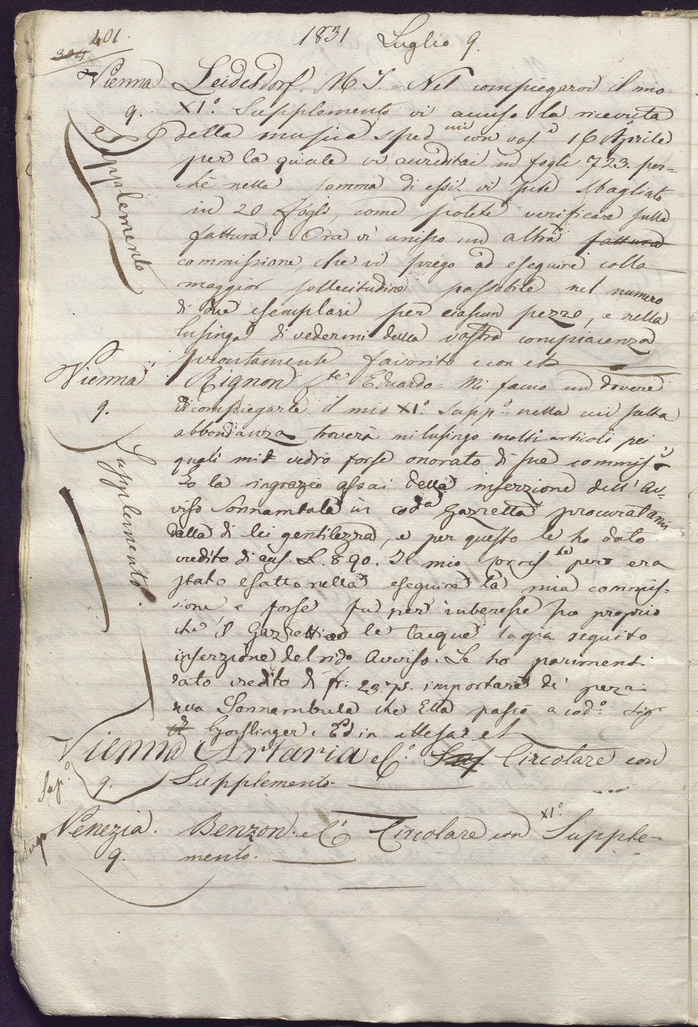 401.
304
1831 Luglio 9.
Vienna Leidesdorf. M. J. Nel compiegarvi il mio
9. XI.° Supplemento vi avviso la ricevuta
e Supplemento
della musica sped.mi con vos.a 16 Aprile
per la quale vi accreditai in fogli 723. per-
chè nella somma di essi vi siete sbagliato
in 20 fogli, come potete verificare sulla
fattura. Ora vi unisco un altra fattura
commissione, che vi prego ad eseguire colla
maggior sollecitudine possibile nel numero
di due esemplari per ciascun pezzo, e nella
lusinga di vedermi dalla vostra compiacenza
prontamente favorito e con et
Vienna Mignon Eduardo. Mi faccio un dovere
9. compiegarle il mio XI.° Supp.° nella cui
Supplemento
abbondanza troverà mi lusingo molti articoli pei
quali mi vedrò forse onorato di sue commiss.i
Io la ringrazio assai della inserzione dell' Av-
viso Sonnambula in cod.a Gazzetta procuratami
dalla di lei gentilezza, e per questo le ho dato
credito di aus. L. 8.90. Il mio però era
stato esatto nella eseguire la mia commis-
sione e forse fu per ha proprio
che il Gazzettiere le tacque la già seguita
inserzione del Avviso. Le ho parimenti
dato credito di fr: 23.75. importare di pezzi
Sonnambula che Ella passò a cod.° Sig.r
Ed in attesa et
Vienna Artaria e C.° Circolare con
9. Supplemento
Sup.°
Venezia. Benzon e C.° Circolare con XI.° Supple-
9. mento.